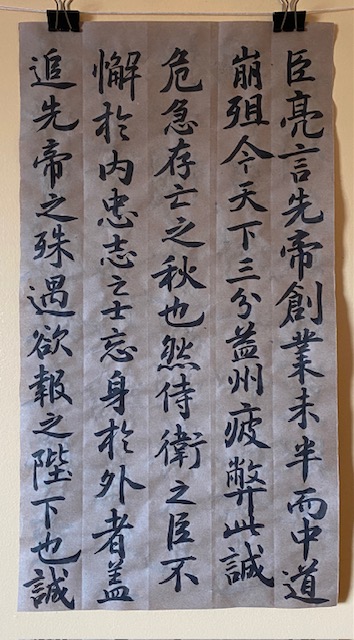 臣亮言先帝創業未半而中道
崩殂今天下三分益州疲弊此誠
危急存亡之秋也然侍衛之臣不
懈於内忠志之士忘身於外者盖
追先帝之殊遇欲報之陛下也誠